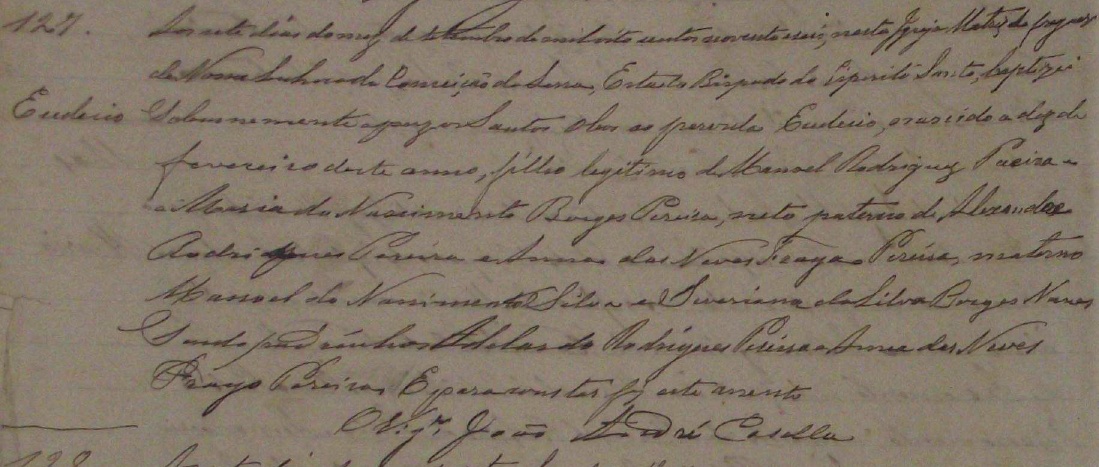 127. Aos sete dias do mez de setembro de mil oito centos noventa seis, nesta Igreja Matriz da freguezia
de Nossa Senhora da Conceição da Serra, Estado Bispado do Espirito Santo, baptizei
Eudecio Solemnemente e puz os Santos Oleos ao parvulo Eudecio, nascido a dez de
fevereiro deste anno, filho legitimo de Manoel Rodrigues Pereira e
Maria do Nascimento Borges Pereira, neto paterno de Alexandre
Rodrigues Pereira e Anna das Neves Fraga Pereira, materno
Manoel do Nascimento Silva e Severiana da Silva Borges Nunes
Sendo padrinhos Adelardo Rodrigues Pereira e Anna das Neves
Fraga Pereira. E para constar fiz este assento
O Vigr.º João André Casella
128